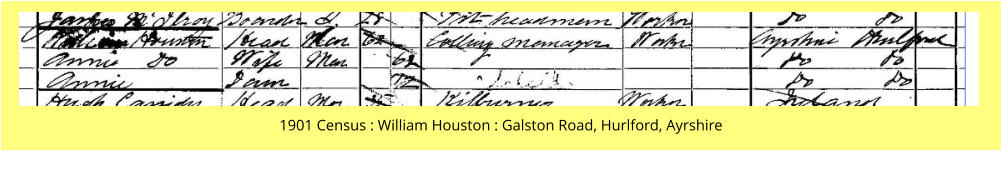 James McIlroy Boarder S. 28 Pit headman Worker Do Do
William Houston Head Mar 62 Colliery manager Worker Ayrshire Hurlford
Annie Do Wife Mar 62 Do Do
Annie Do Do
Hugh Head Mar Worker Ireland
1901 Census : William Houston : Galston Road, Hurlford, Ayrshire